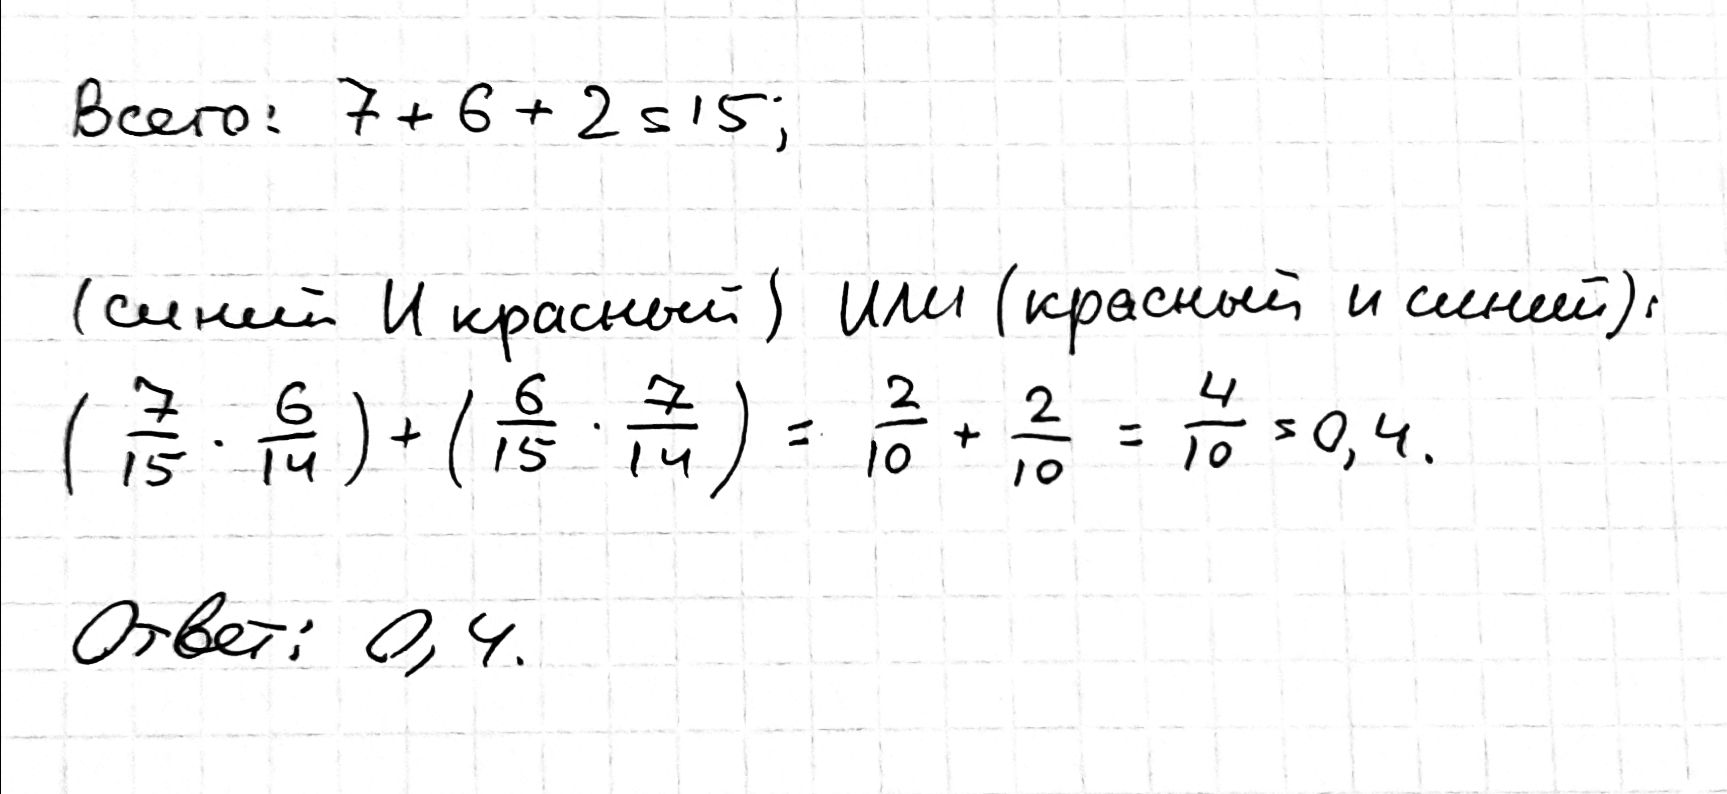 Всего: 7 + 6 + 2 = 15;
(синий И красный) ИЛИ (красный и синий):
(7/15 · 6/14) + (6/15 · 7/14) = 2/10 + 2/10 = 4/10 = 0,4.
Ответ: 0,4.